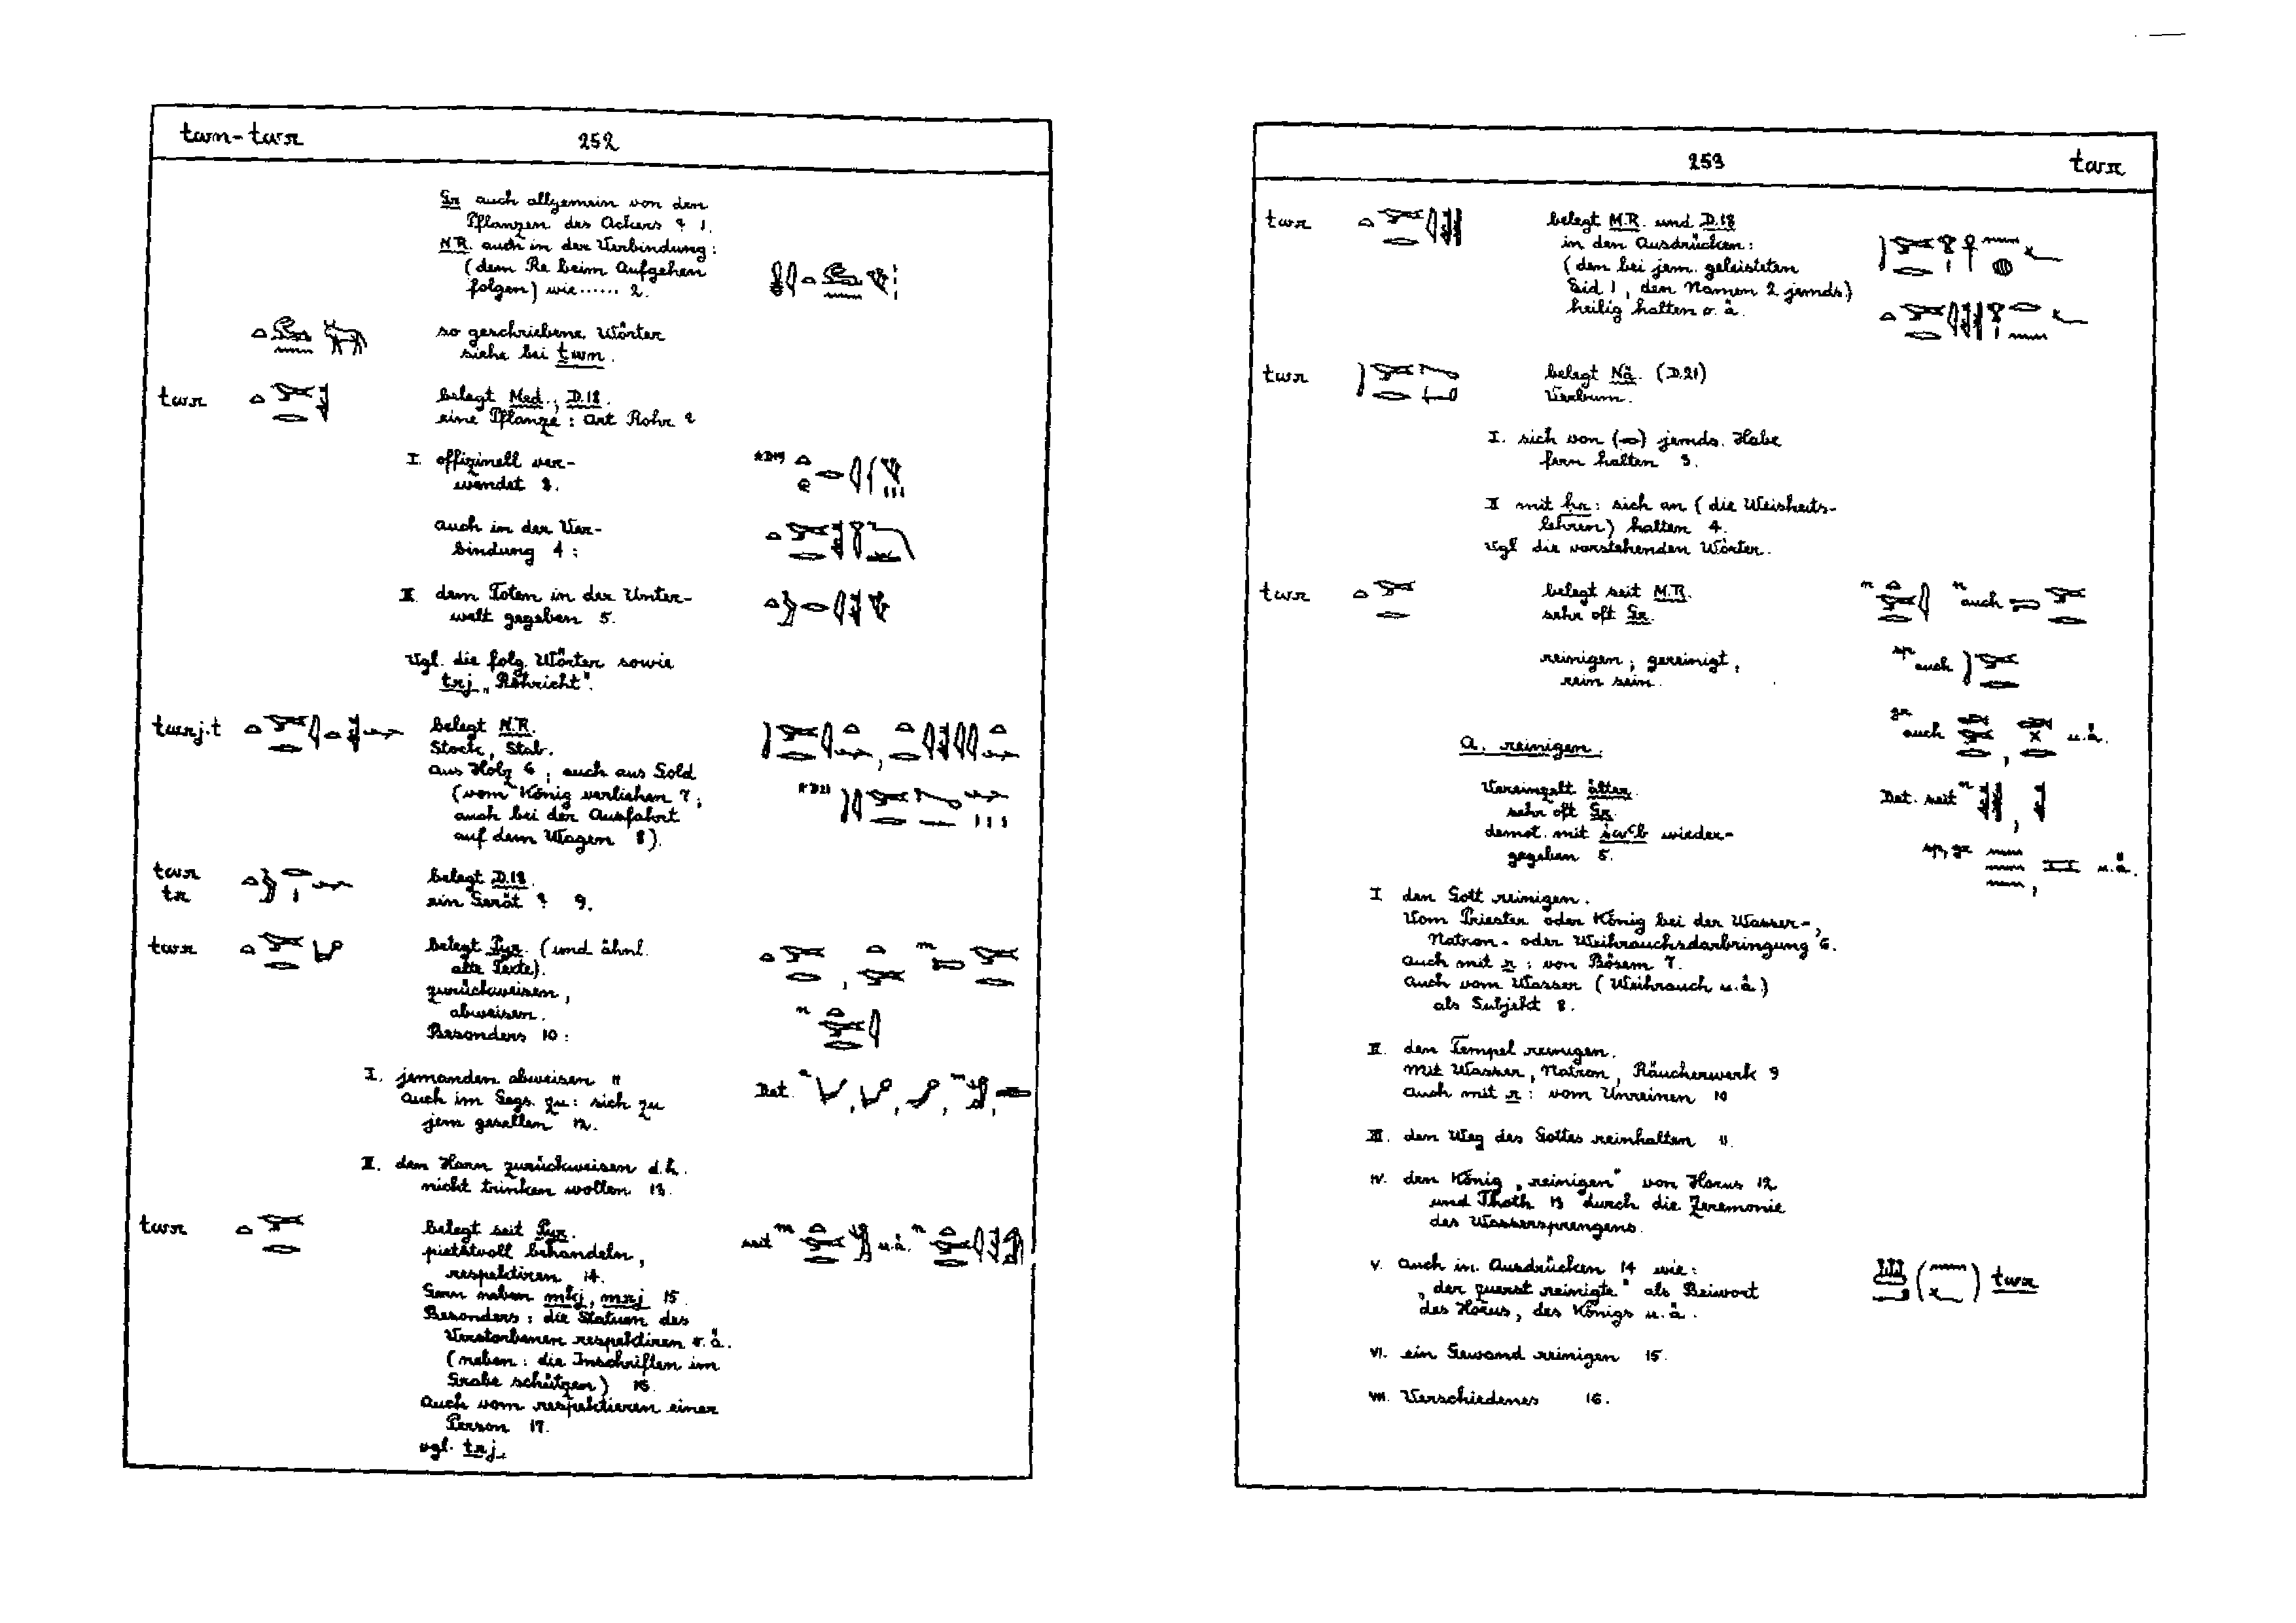 twn - twr 252
Gr auch allgemein von den
Pflanzen des Ackers ? 1.
N.R. auch in der Verbindung:
(dem Re beim Aufgehen
folgen) wie ...... 2.
so geschriebene Wörter
siehe bei ṯwn.
twr belegt Med., D.18.
eine Pflanze: Art Rohr ?
I. offizinell ver-
wendet 3.
auch in der Ver-
bindung 4:
II. dem Toten in der Unter-
welt gegeben 5.
Vgl. die folg. Wörter sowie
trj „Röhricht".
twrj.t belegt N.R.
Stock, Stab.
aus Holz 6, auch aus Gold
(vom König verliehen 7;
auch bei der Ausfahrt
auf dem Wagen 8).
twr
tr belegt D.18.
ein Gerät ? 9.
twr belegt Pyr. (und ähnl.
alte Texte).
zurückweisen,
abweisen.
Besonders 10:
I. jemanden abweisen 11
auch im Ggs. zu: sich zu
jem gesellen 12.
Det.
II. den Harn zurückweisen d.h.
nicht trinken wollen 13.
twr belegt seit Pyr.
pietätvoll behandeln,
respektiren 14.
seit u.ä.
Gern neben mkj, mrj 15.
Besonders: die Statuen des
Verstorbenen respektiren o.ä.
(neben: die Inschriften im
Grabe schützen) 16.
Auch vom respektieren einer
Person 17.
vgl. trj.
253 twr
twr belegt M.R. und D.18
in den Ausdrücken:
(den bei jem. geleisteten
Eid 1, den Namen 2 jemds.)
heilig halten o.ä.
twr belegt Nä. (D.21)
Verbum.
I. sich von jemds. Habe
fern halten 3.
II mit ḥr: sich an (die Weisheits-
lehren) halten 4.
Vgl die vorstehenden Wörter.
twr belegt seit M.R.
sehr oft Gr.
auch
reinigen; gereinigt,
rein sein.
sp auch
gr auch u.ä.
A. reinigen.
Vereinzelt älter.
sehr oft Gr.
Det. seit
demot. mit iwꜥb wieder-
gegeben 5.
sp, gr u.ä.
I den Gott reinigen.
Vom Priester oder König bei der Wasser-,
Natron- oder Weihrauchsdarbringung 6.
auch mit r: von Bösem 7.
Auch vom Wasser (Weihrauch u.ä.)
als Subjekt 8.
II. den Tempel reinigen.
mit Wasser, Natron, Räucherwerk 9
auch mit r: vom Unreinen 10
III. den Weg des Gottes reinhalten 11.
IV. den König „reinigen" von Horus 12
und Thoth 13 durch die Zeremonie
des Wassersprengens.
V. Auch in Ausdrücken 14 wie:
„der zuerst reinigte" als Beiwort
des Horus, des Königs u.ä.
twr
VI. ein Gewand reinigen 15.
VII. Verschiedenes 16.